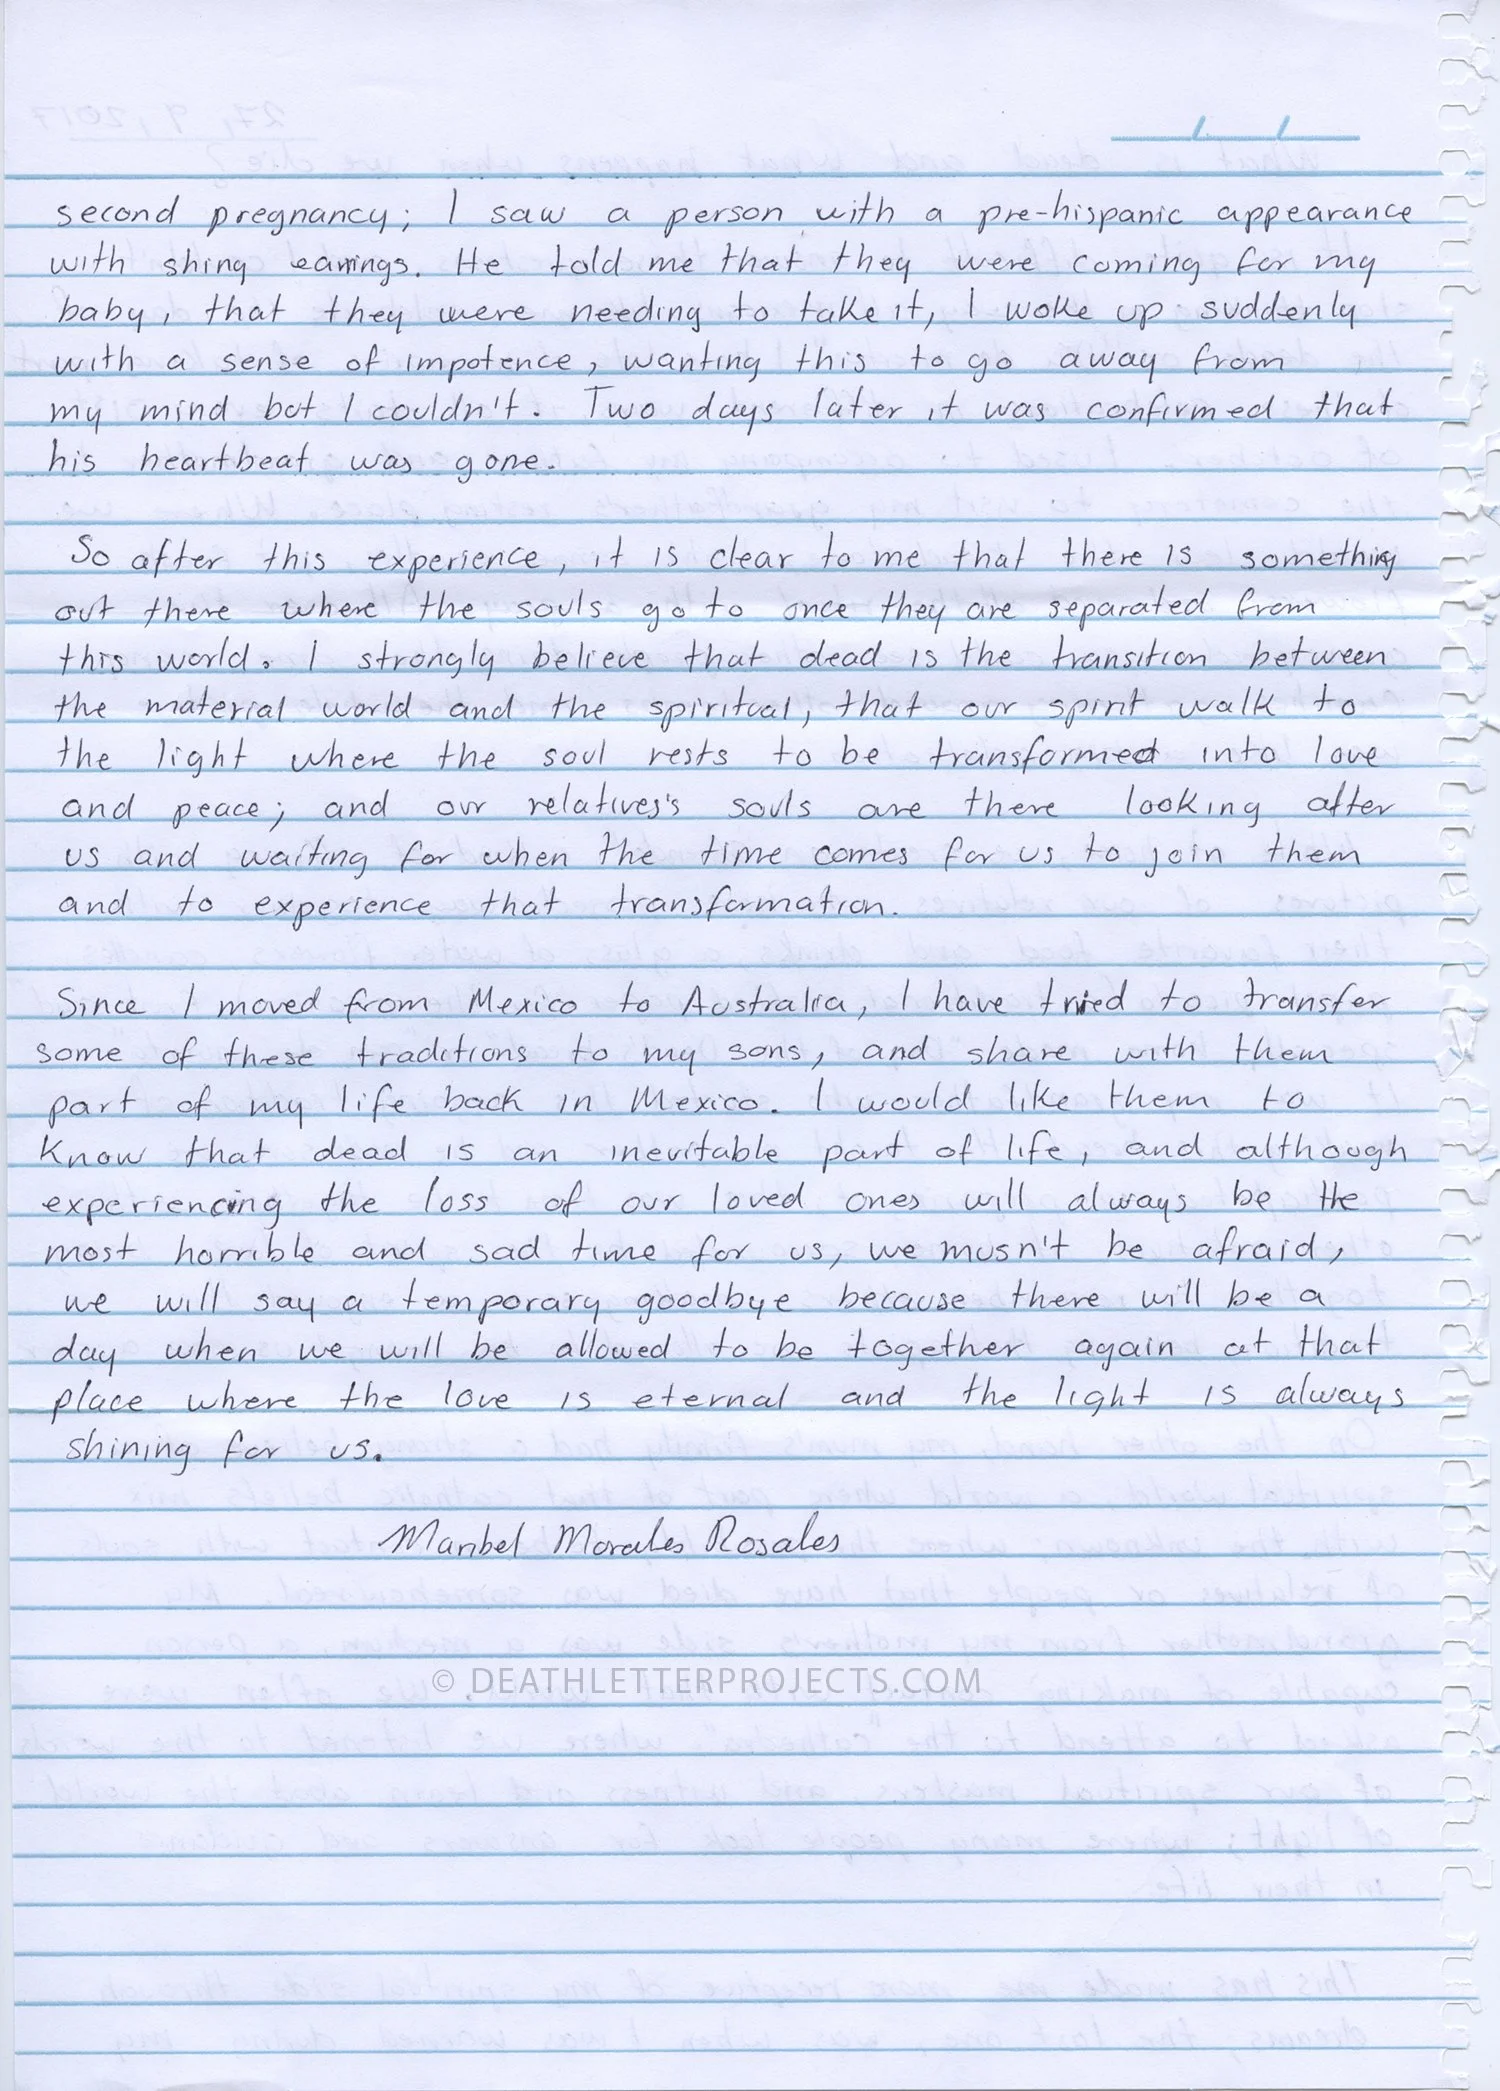 second pregnancy; I saw a person with a pre-hispanic appearance
with shing earrings. He told me that they were coming for my
baby, that they were needing to take it, I woke up suddenly
with a sense of impotence, wanting this to go away from
my mind but I couldn't. Two days later it was confirmed that
his heartbeat was gone.
So after this experience, it is clear to me that there is something
out there where the souls go to once they are separated from
this world. I strongly believe that dead is the transition between
the material world and the spiritual, that our spirit walk to
the light where the soul rests to be transformed into love
and peace; and our relatives's souls are there looking after
us and waiting for when the time comes for us to join them
and to experience that transformation.
Since I moved from Mexico to Australia, I have tried to transfer
some of these traditions to my sons, and share with them
part of my life back in Mexico. I would like them to
know that dead is an inevitable part of life, and although
experiencing the loss of our loved ones will always be the
most horrible and sad time for us, we musn't be afraid,
we will say a temporary goodbye because there will be a
day when we will be allowed to be together again at that
place where the love is eternal and the light is always
shining for us.
Maribel Morales Rosales
© DEATHLETTERPROJECTS.COM